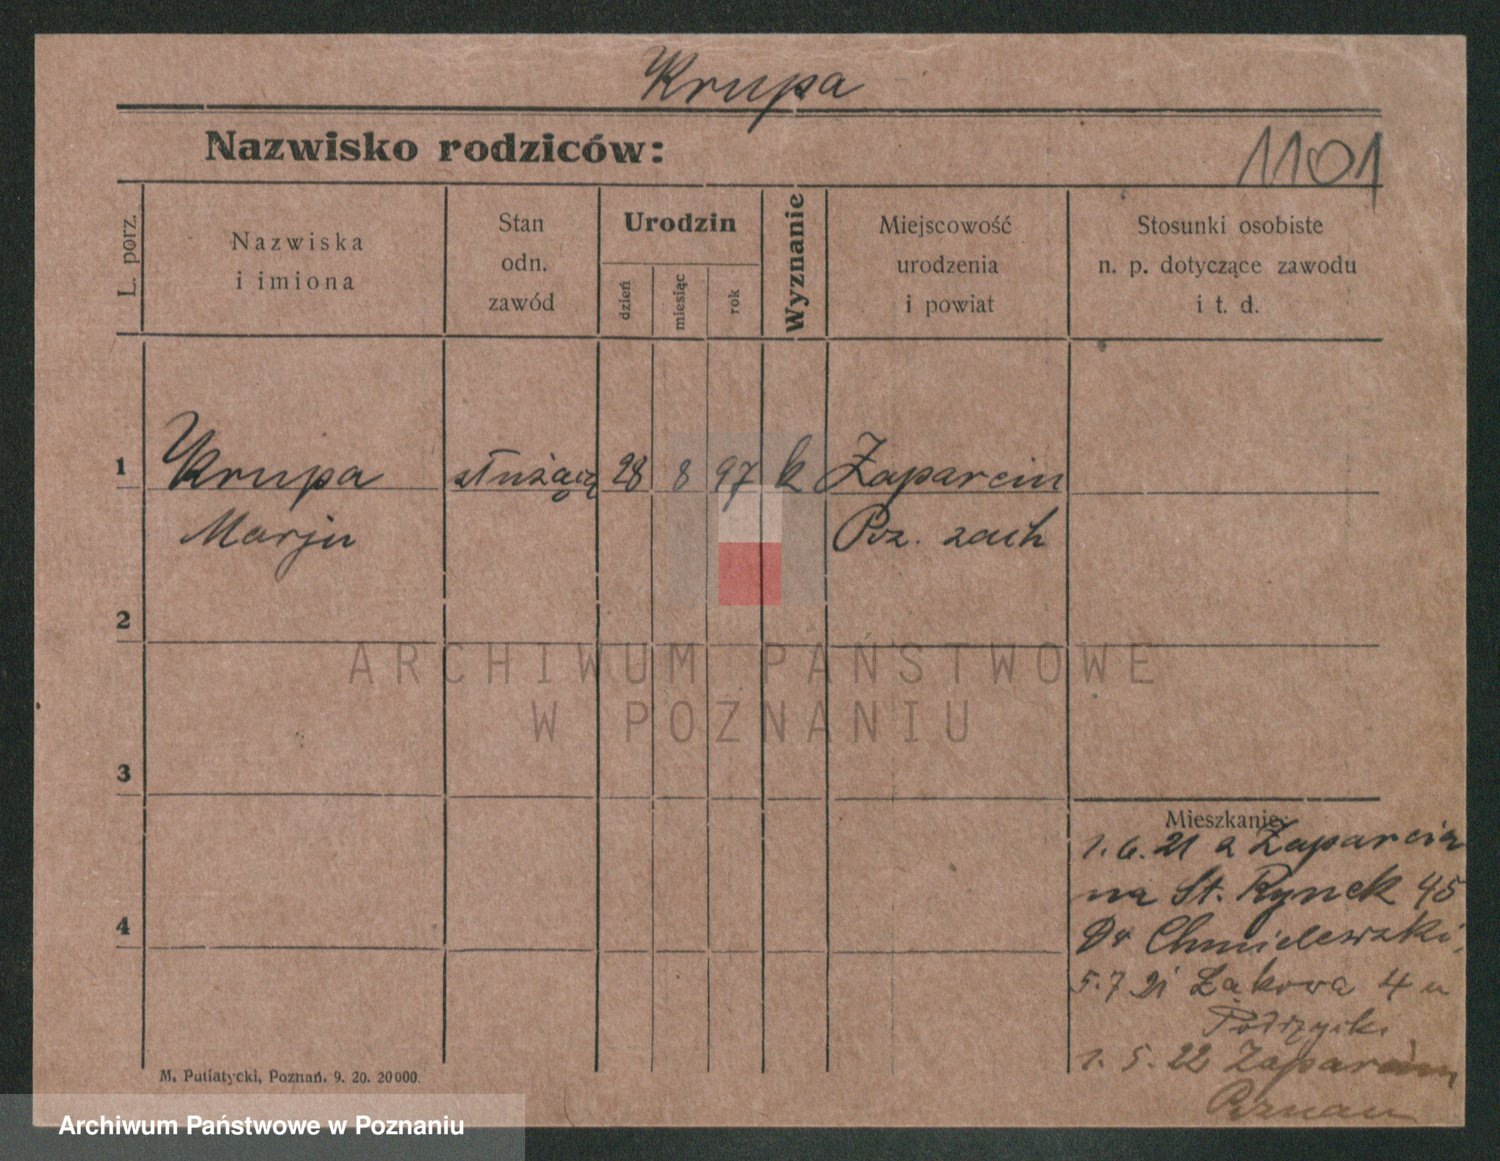 Krupa
Nazwisko rodziców:
1101
L. porz.
Nazwiska
i imiona
Stan
odn.
zawód
Urodzin
dzień
miesiąc
rok
Wyznanie
Miejscowość
urodzenia
i powiat
Stosunki osobiste
n. p. dotyczące zawodu
i t. d.
1 Krupa służąca 28 8 97 k Zaparcin
Marja Poz. zach
2
ARCHIWUM PAŃSTWOWE
W POZNANIU
3
Mieszkanie:
1.6.21 z Zaparcia
na St. Rynek 45
4
Dr Chmielewski
5.7 21 Łąkowa 4 u
1. 5. 22 Zaparcin
Poznan
M. Putiatycki, Poznań. 9. 20. 20000.
Archiwum Państwowe w Poznaniu